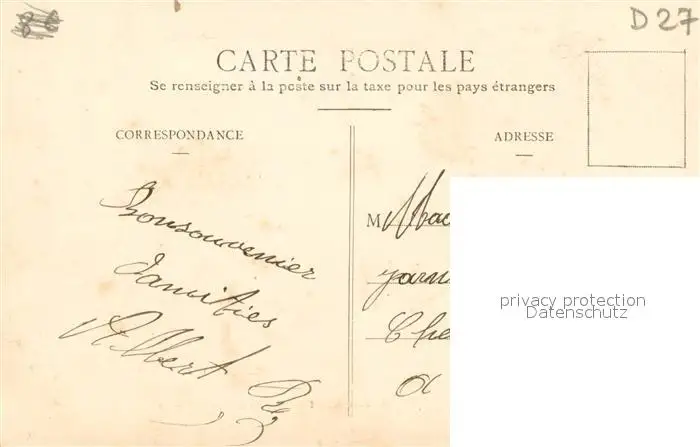 8€
D27
CARTE POSTALE
Se renseigner à la poste sur la taxe pour les pays étrangers
CORRESPONDANCE
ADRESSE
Bonsouvenier
damities
Albert
M Mad
Che
privacy protection
Datenschutz